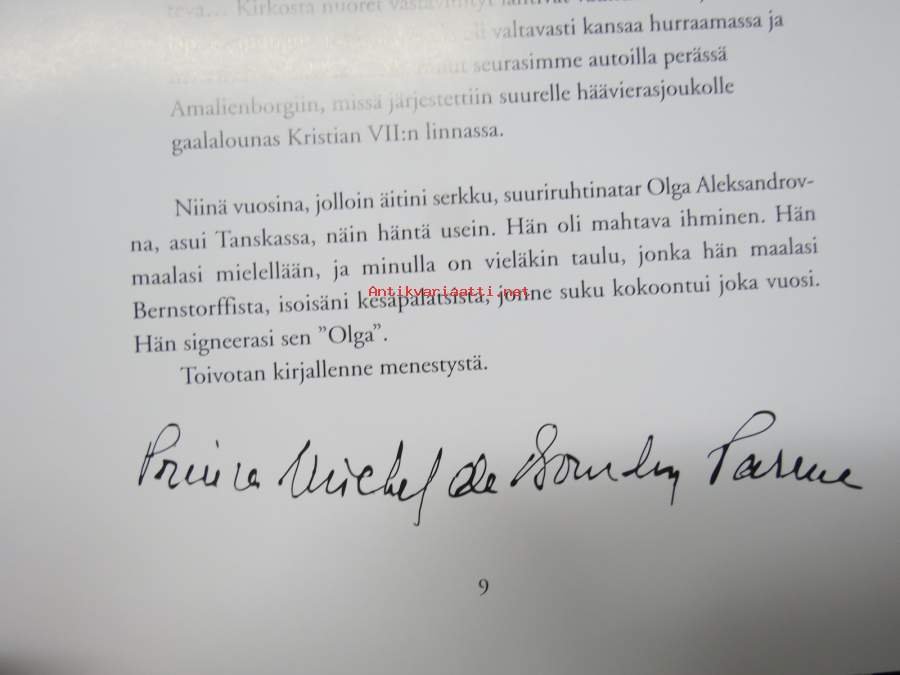 teva... Kirkosta nuoret vastavihityt
oli valtavasti kansaa hurraamassa ja
muut seurasimme autoilla perässä
Amalienborgiin, missä järjestettiin suurelle häävierasjoukolle
gaalalounas Kristian VII:n linnassa.
Niinä vuosina, jolloin äitini serkku, suuriruhtinatar Olga Aleksandrov-
na, asui Tanskassa, näin häntä usein. Hän oli mahtava ihminen. Hän
maalasi mielellään, ja minulla on vieläkin taulu, jonka hän maalasi
Antikvariaatti.net
Bernstorffista, isoisäni kesäpalatsista, jonne suku kokoontui joka vuosi.
Hän signeerasi sen ”Olga”.
Toivotan kirjallenne menestystä.
Prince Michel de Bourbon Parme
9